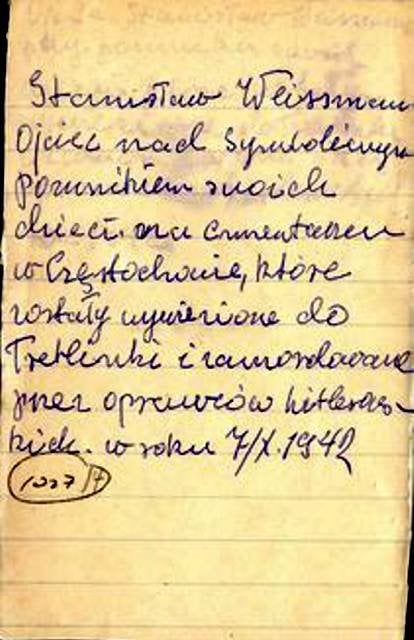 Stanisław Weissman
Ojciec nad symbolicznym
pomnikiem swoich
dzieci na cmentarzu
w Częstochowie, które
zostały wywiezione do
Treblinki i zamordowane
przez oprawców hitlerow-
skich. w roku 7/X.1942
1027/7